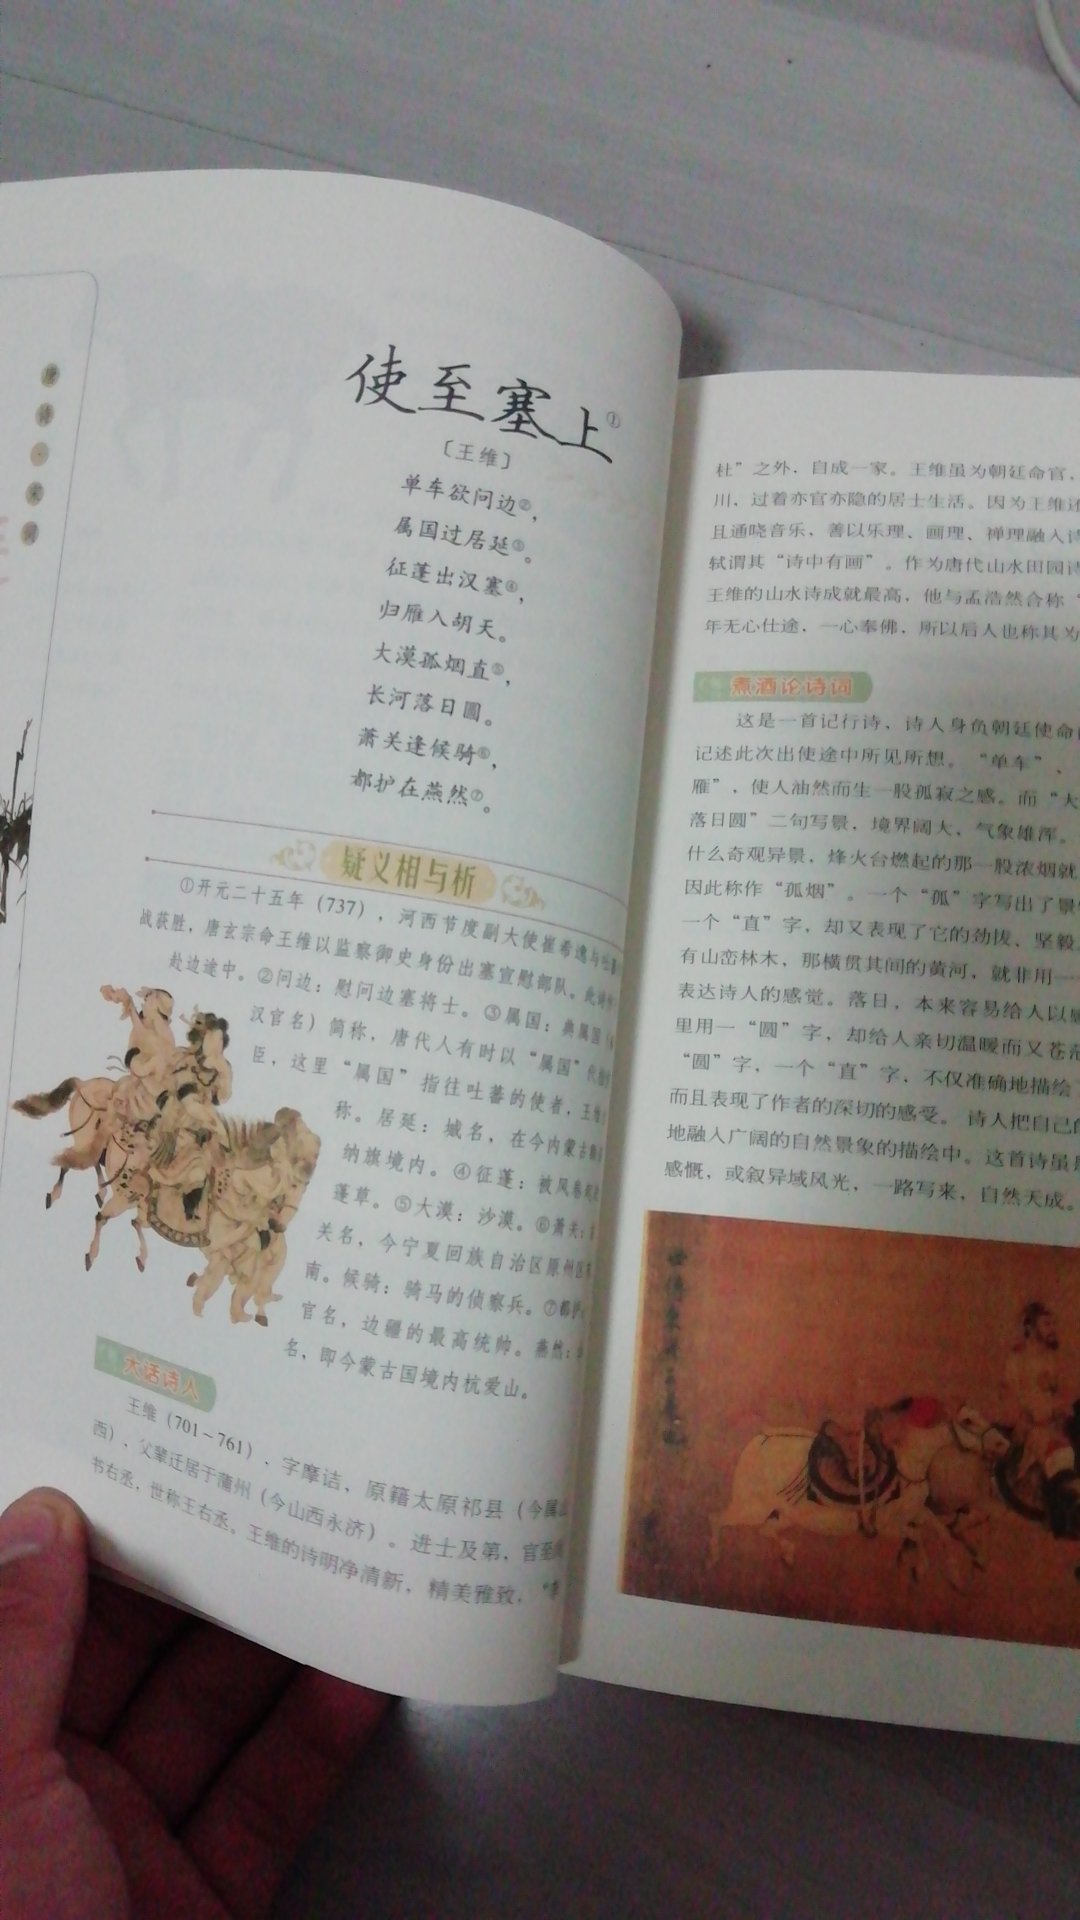 唐诗·宋词
使至塞上①
〔王维〕
单车欲问边②，
属国过居延③。
征蓬出汉塞④，
归雁入胡天。
大漠孤烟直⑤，
长河落日圆。
萧关逢候骑⑥，
都护在燕然⑦。
疑义相与析
①开元二十五年（737），河西节度副大使崔希逸与吐蕃
战获胜，唐玄宗命王维以监察御史身份出塞宣慰部队。此诗
赴边途中。②问边：慰问边塞将士。③属国：典属国（
汉官名）简称，唐代人有时以“属国”代
臣，这里“属国”指往吐蕃的使者，王维
称。居延：城名，在今内蒙古额
纳旗境内。④征蓬：被风卷起
蓬草。⑤大漠：沙漠。⑥萧关：
关名，今宁夏回族自治区原州区
南。候骑：骑马的侦察兵。⑦都护：
官名，边疆的最高统帅。燕然：
名，即今蒙古国境内杭爱山。
大话诗人
王维（701－761），字摩诘，原籍太原祁县（今属山
西），父辈迁居于蒲州（今山西永济）。进士及第，官至
书右丞，世称王右丞。王维的诗明净清新，精美雅致，“李
杜”之外，自成一家。王维虽为朝廷命官，
川，过着亦官亦隐的居士生活。因为王维还
且通晓音乐，善以乐理、画理、禅理融入诗
轼谓其“诗中有画”。作为唐代山水田园诗
王维的山水诗成就最高，他与孟浩然合称“
年无心仕途，一心奉佛，所以后人也称其为
煮酒论诗词
这是一首记行诗，诗人身负朝廷使命
记述此次出使途中所见所想。“单车”、
雁”，使人油然而生一股孤寂之感。而“大
落日圆”二句写景，境界阔大，气象雄浑。
什么奇观异景，烽火台燃起的那一股浓烟就
因此称作“孤烟”。一个“孤”字写出了景
一个“直”字，却又表现了它的劲拔、坚毅
有山峦林木，那横贯其间的黄河，就非用一
表达诗人的感觉。落日，本来容易给人以
里用一“圆”字，却给人亲切温暖而又苍茫
“圆”字，一个“直”字，不仅准确地描绘
而且表现了作者的深切的感受。诗人把自己的
地融入广阔的自然景象的描绘中。这首诗虽
感慨，或叙异域风光，一路写来，自然天成。